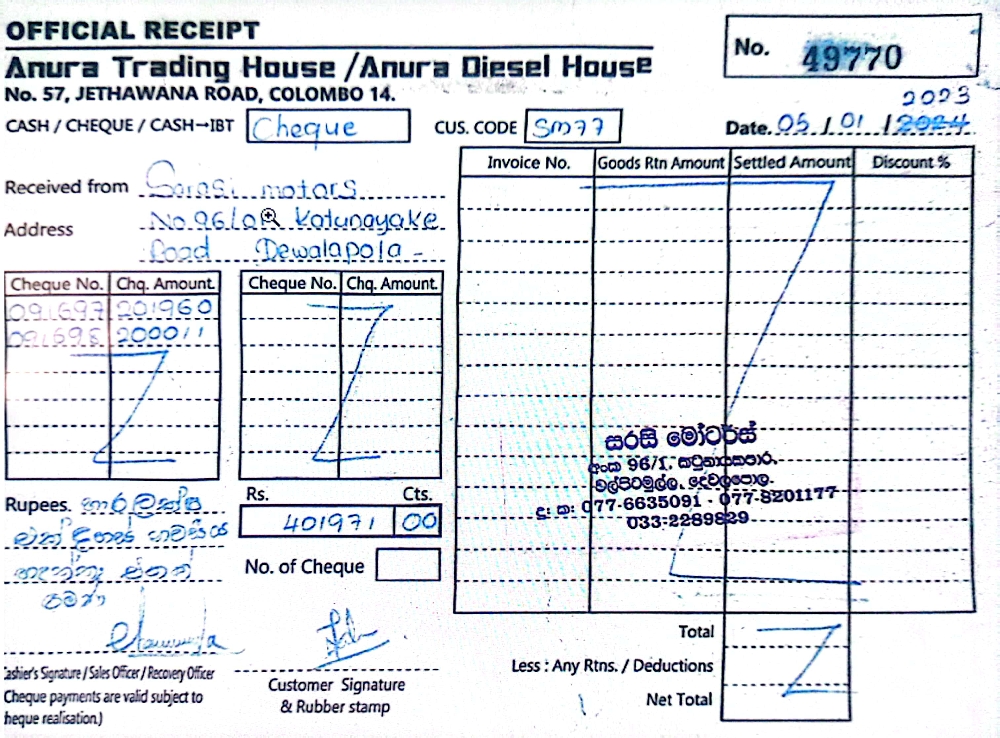 OFFICIAL RECEIPT
No. 49770
Anura Trading House /Anura Diesel House
No. 57, JETHAWANA ROAD, COLOMBO 14.
2023
CASH / CHEQUE / CASH→IBT Cheque CUS. CODE Sm77 Date. 05 / 01 / 2024
Invoice No. Goods Rtn Amount Settled Amount Discount %
Received from Sarasi motors
Address No.96/ Katunayake
Road Dewalapola -
Cheque No. Chq. Amount. Cheque No. Chq. Amount.
091697 201960
091698 200011
සරසි මෝටර්ස්
අංක 96/1, කටුනායකපාර,
මල්පිටමුල්ල, දෙවලපොල.
දු: ක: 077-6635091 - 077-8201177
033-2289829
Rs. Cts.
Rupees. හාර ලක්ෂ
එක් දහස් නවසිය
401971 00
හැත්තෑ එකක්
පමණි
No. of Cheque
Total
Less : Any Rtns. / Deductions
Net Total
Cashier's Signature / Sales Officer / Recovery Officer
Customer Signature
& Rubber stamp
Cheque payments are valid subject to
heque realisation.)